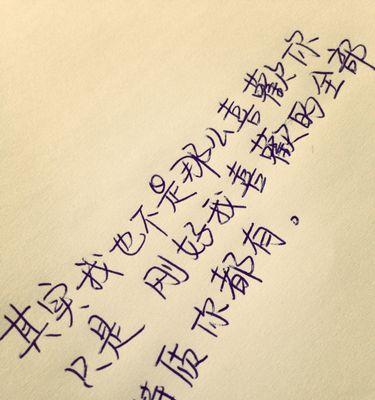 其实我也不是那么喜歡你
只是 刚好我喜歡的全部
质你都有。